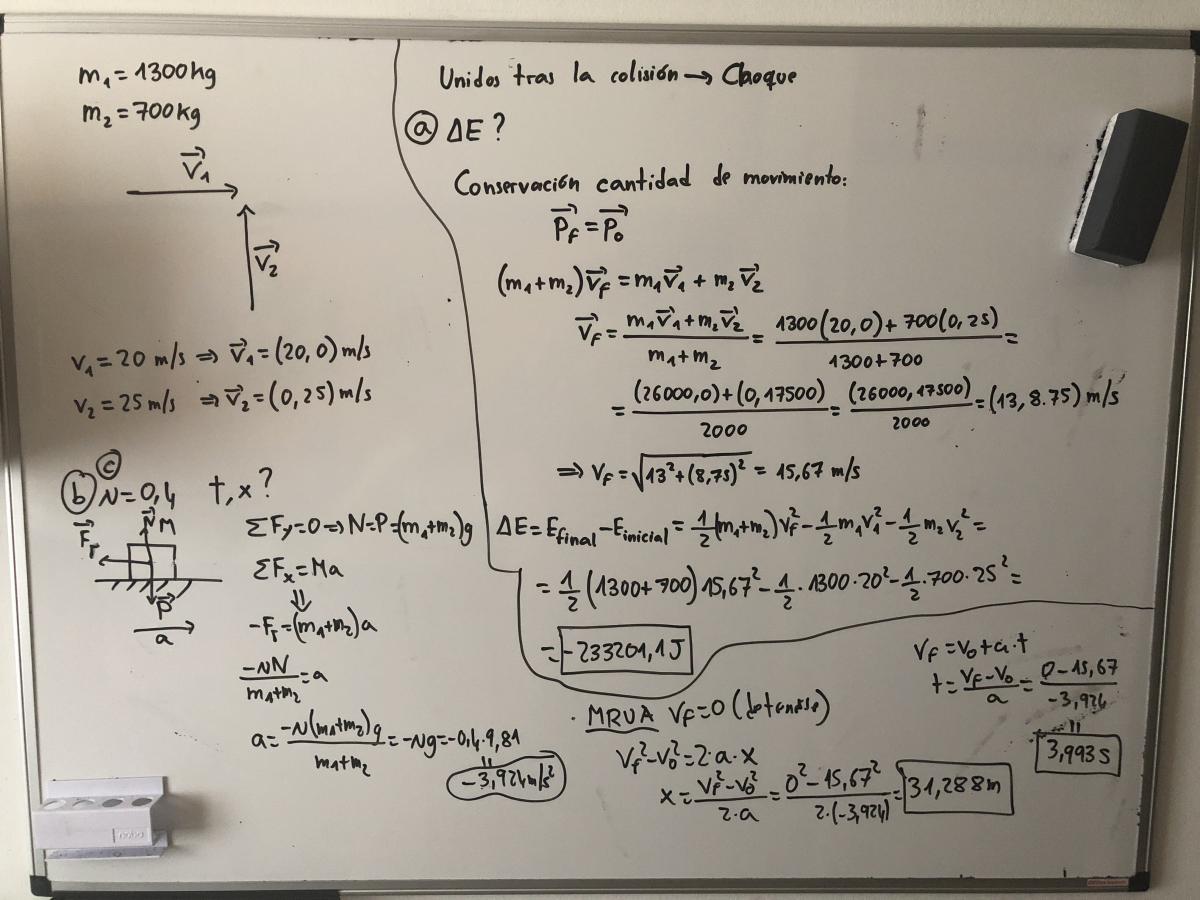 m₁=1300kg
m₂=700kg
V⃗₁
V⃗₂
v₁=20 m/s ⇒ V⃗₁=(20,0)m/s
v₂=25m/s ⇒ V⃗₂=(0,25)m/s
Unidos tras la colisión → Choque
ⓐ ΔE?
Conservación cantidad de movimiento:
P⃗f=P⃗₀
(m₁+m₂)V⃗f=m₁V⃗₁+m₂V⃗₂
V⃗f=(m₁V⃗₁+m₂V⃗₂)/(m₁+m₂)=(1300(20,0)+700(0,25))/(1300+700)=
=((26000,0)+(0,17500))/2000=(26000,17500)/2000=(13,8.75)m/s
⇒ Vf=√(13²+(8,75)²)=15,67 m/s
ΔE=Efinal-Einicial=½(m₁+m₂)Vf²-½m₁V₁²-½m₂V₂²=
=½(1300+700)15,67²-½·1300·20²-½·700·25²=
=-233201,1J
ⓒ
ⓑ N=0,4 t,x?
N⃗ M
F⃗r
P⃗
a
ΣFy=0⇒N=P=(m₁+m₂)g
ΣFx=Ma
⇓
-Fr=(m₁+m₂)a
-NN/(m₁+m₂)=a
a=-N(m₁+m₂)g/(m₁+m₂)=-Ng=-0,4·9,81
=
-3,924m/s²
· MRUA Vf=0 (detenerse)
Vf²-V₀²=2·a·x
x=(Vf²-V₀²)/(2·a)=(0²-15,67²)/(2·(-3,924))=31,288m
Vf=V₀+a·t
t=(Vf-V₀)/a=(0-15,67)/(-3,924)
=
3,993s
nobo